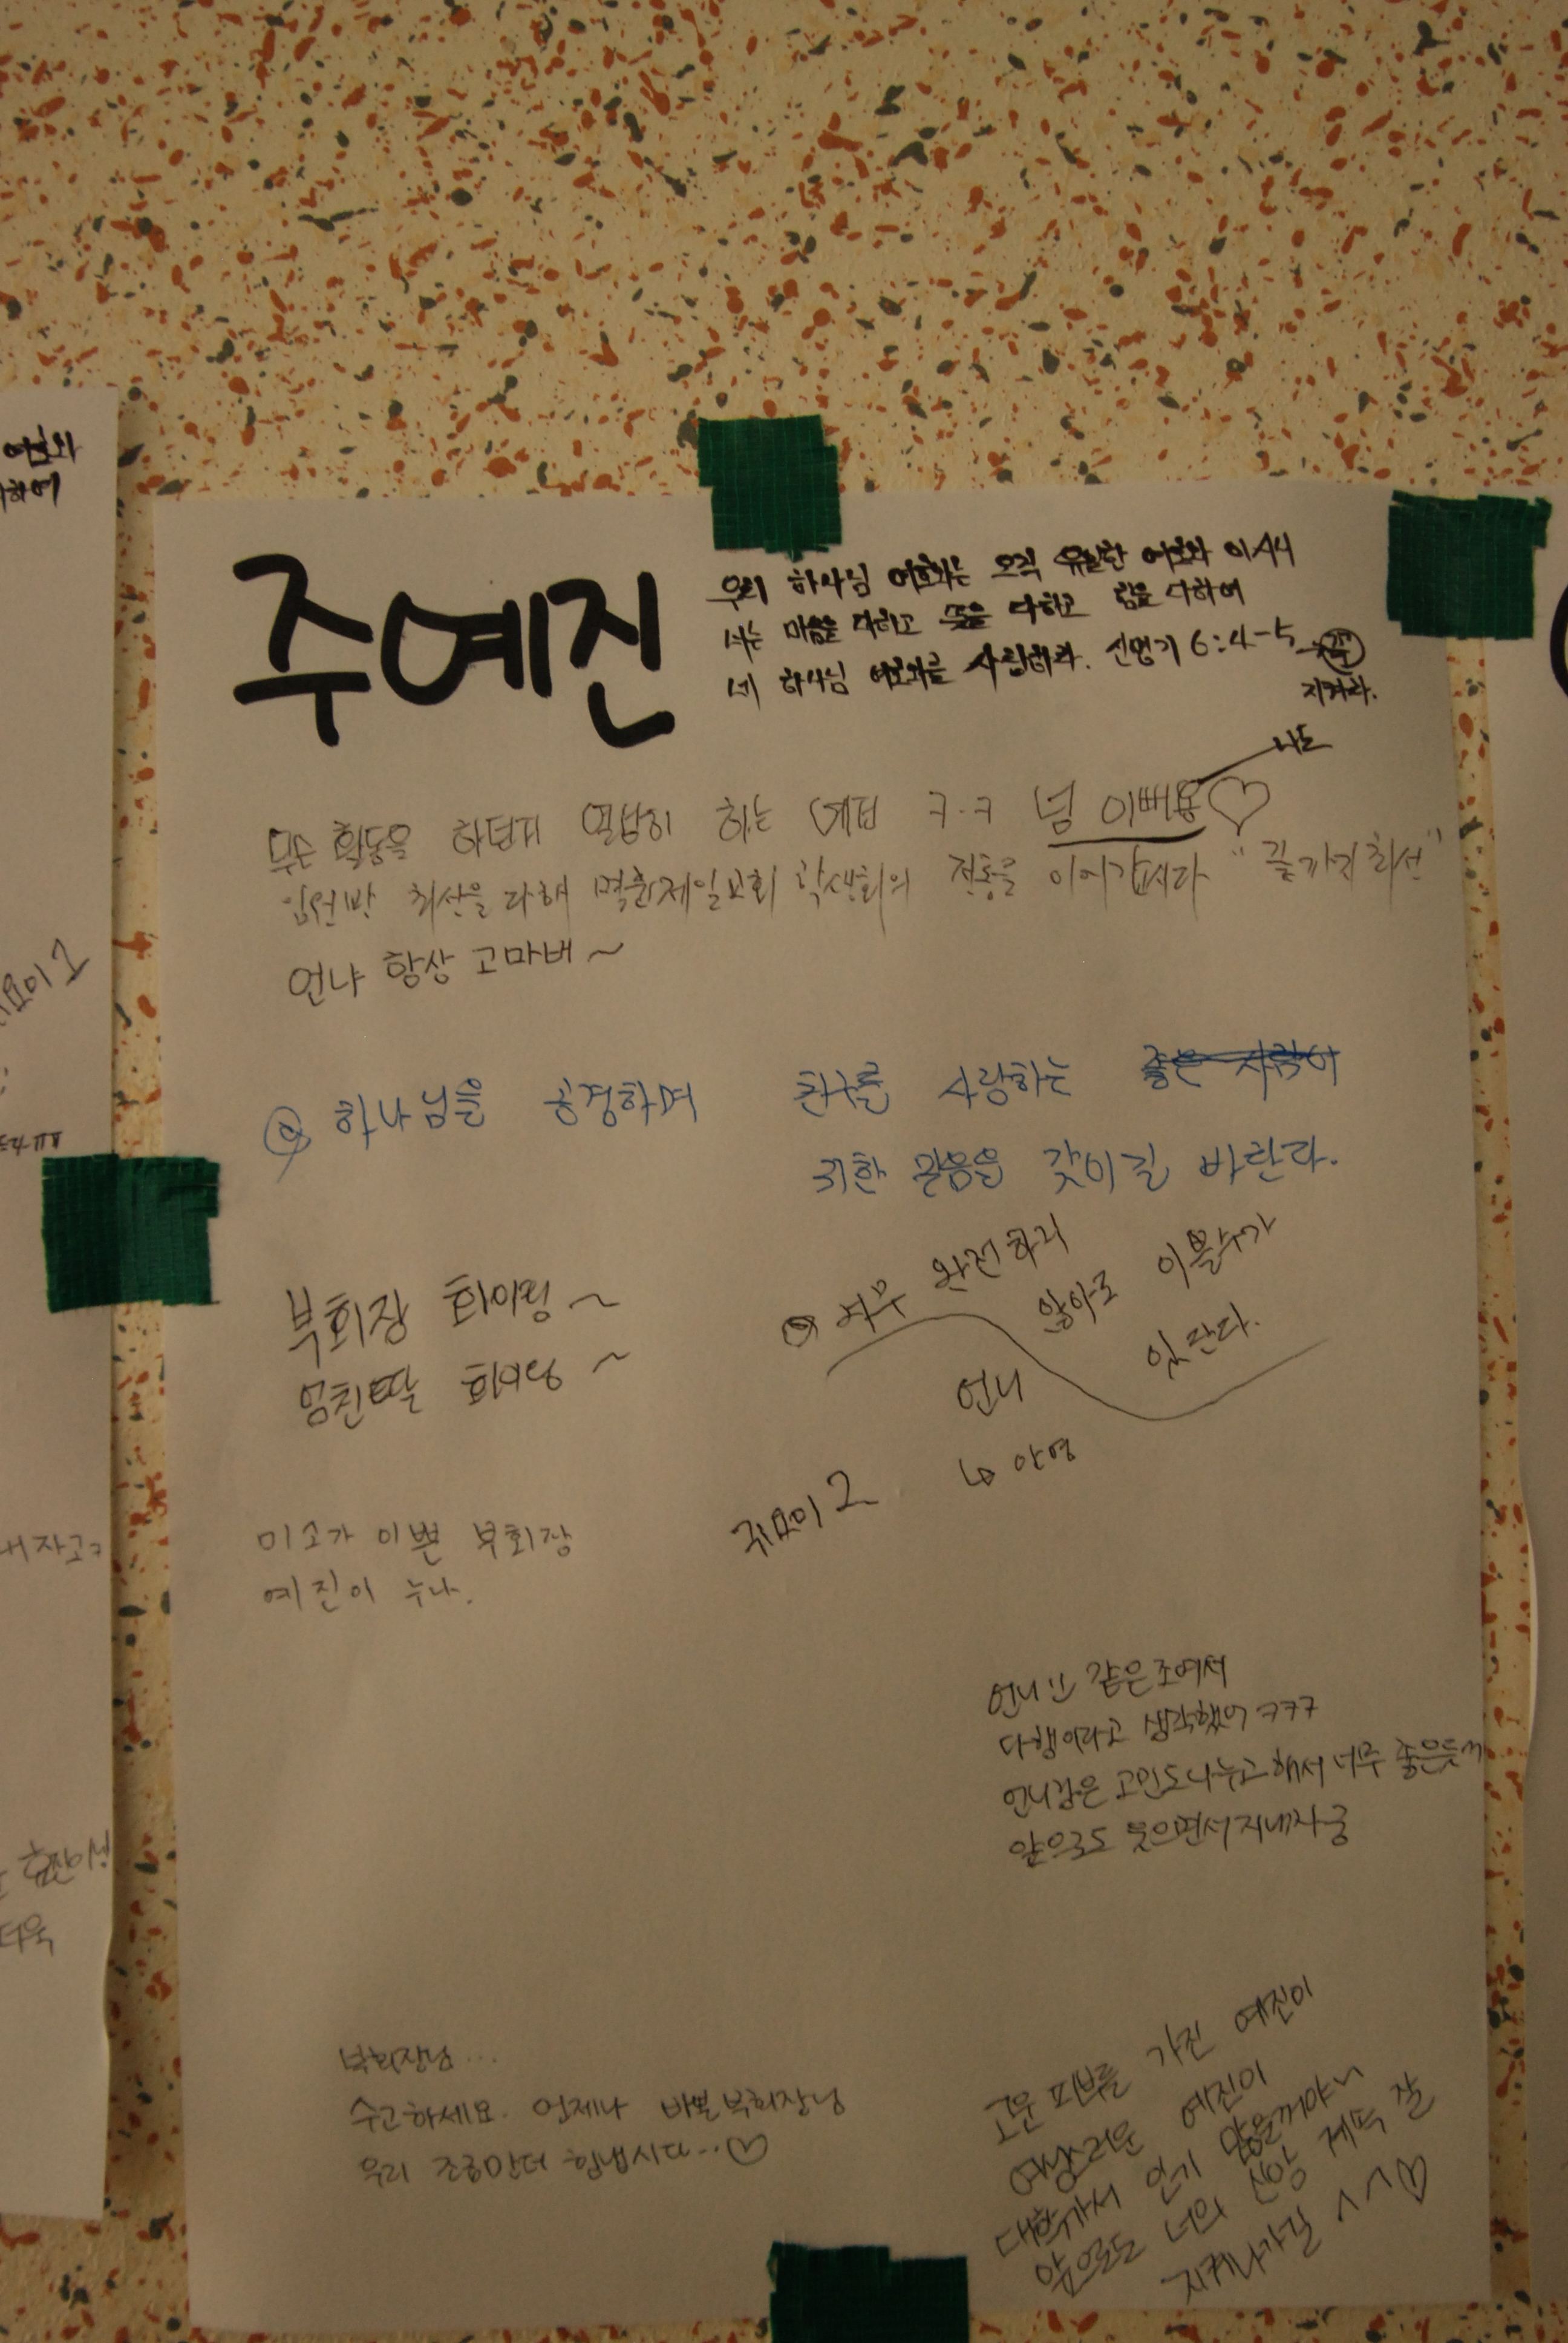 주예진
우리 하나님 여호와는 오직 유일한 여호와 이시니
너는 마음을 다하고 뜻을 다하고 힘을 다하여
네 하나님 여호와를 사랑하라. 신명기 6:4-5 꼭
지켜라.
나도
무슨 활동을 하던지 열심히 하는 ㅋ.ㅋ 넘 이뻐용♡
임원반 최선을 다해 제일교회 학생회의 전통을 이어갑시다 "끝까지 최선"
언냐 항상 고마버~
하나님을 공경하며 친구를 사랑하는
귀한 믿음을 갖이길 바란다.
부회장 화이팅~
엄친딸 화이팅~
너무 완전하지
않아도 이쁠수가
있단다.
언니
↳ 아영
귀요미 2
미소가 이쁜 부회장
예진이 누나.
언니!! 같은조여서
다행이라고 생각했어 ㅋㅋㅋ
언니같은 고민도나누고해서 너무 좋은듯
앞으로도 웃으면서지내자궁
부회장님...
수고하세요. 언제나 바쁜 부회장님
우리 조금만더 힘냅시다...♡
고운 피부를 가진 예진이
여성스러운 예진이
대학가서 인기 많을꺼야
앞으로도 너의 신앙 계속 잘
지켜나가길 ^^♡
여호와
다하여
귀요미 1
내자고ㅋ
더욱